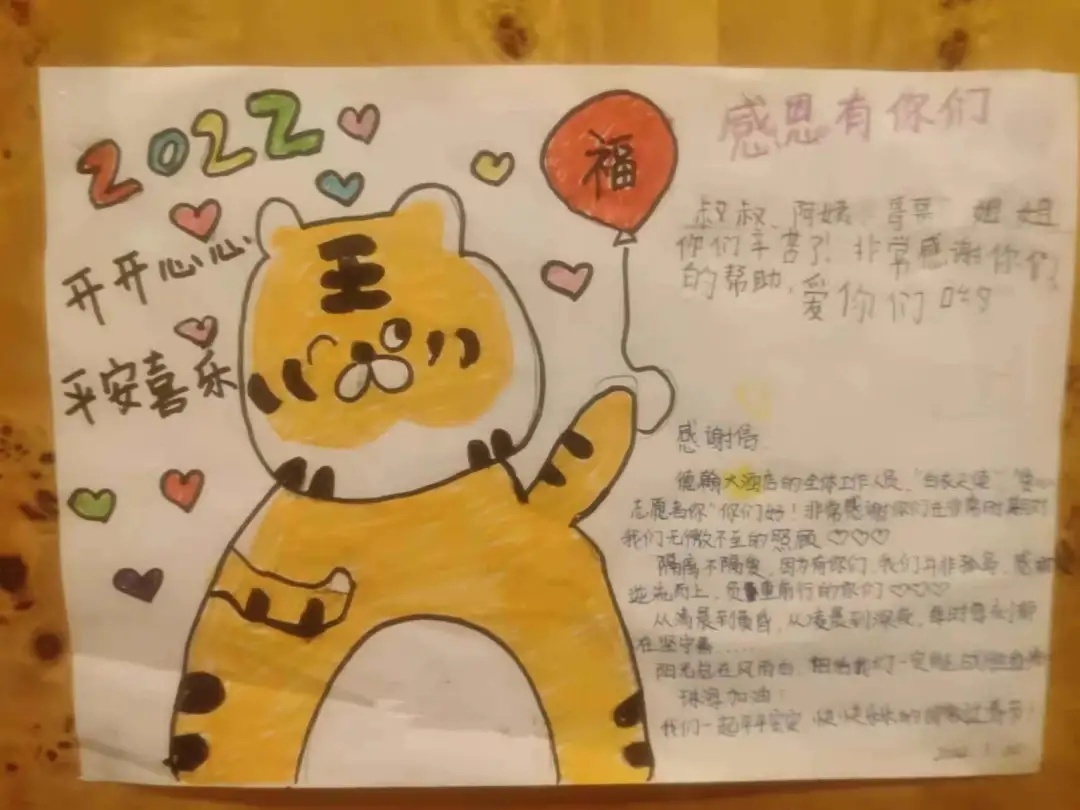 2022
开开心心
平安喜乐
王
福
感恩有你们
叔叔、阿姨、哥哥、姐姐
你们辛苦了！非常感谢你们
的帮助，爱你们
感谢信
德翰大酒店的全体工作人员，“白衣天使”
志愿者 你们好！非常感谢你们在非常时期对
我们无微不至的照顾♡♡♡
隔离不隔爱，因为有你们，我们并非孤岛，感
逆流而上，负重前行的你们♡♡♡
从清晨到黄昏，从凌晨到深夜，每时每刻都
在坚守着……
阳光总在风雨后，相信我们一定
珠海加油！
我们一起平平安安，快快乐乐的 过春节！